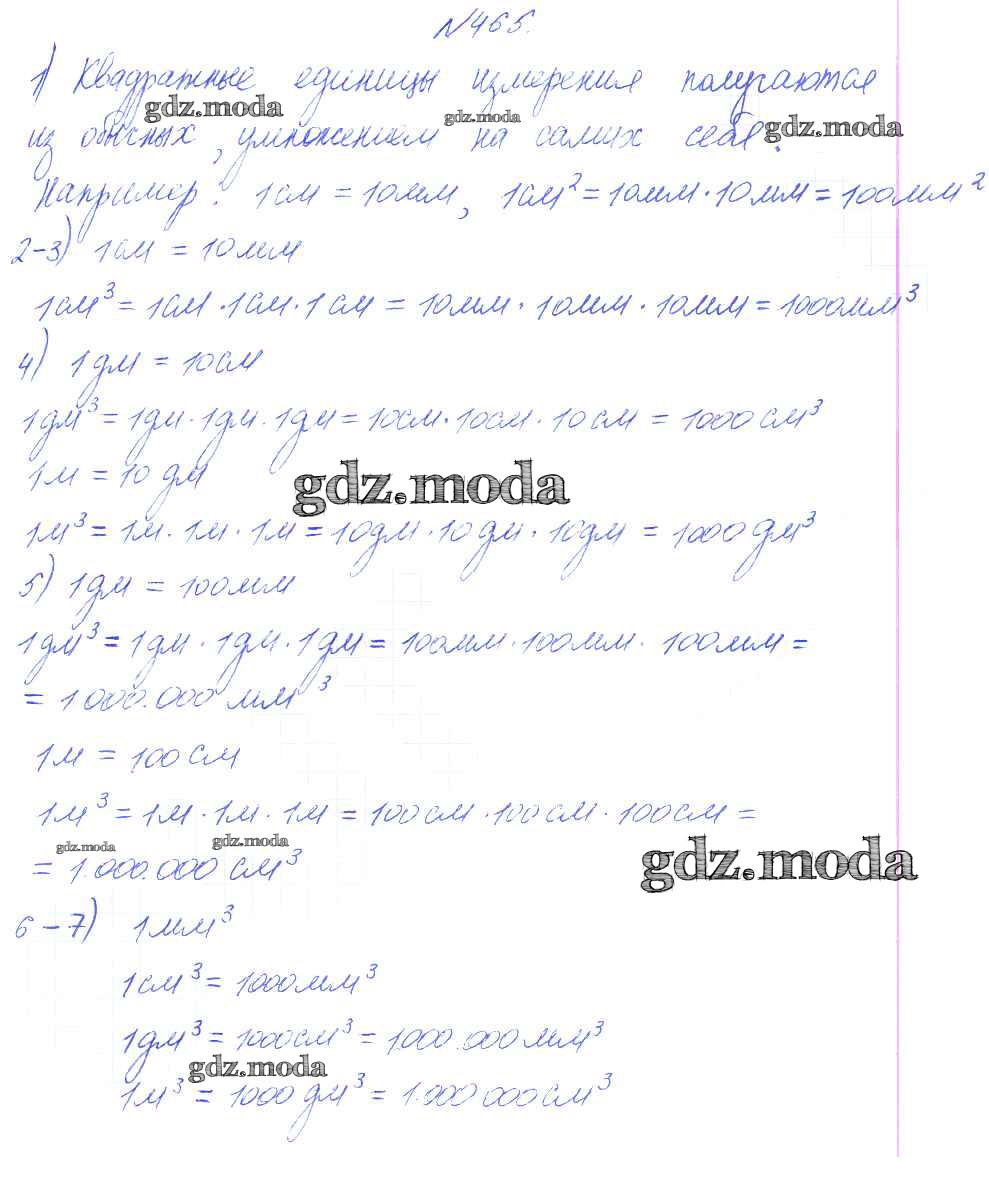 №465.
1) Квадратные единицы измерения получаются
gdz.moda gdz.moda gdz.moda
из обычных, умножением на самих себя.
Например: 1см = 10мм, 1см² = 10мм · 10мм = 100мм²
2-3) 1см = 10мм
1см³ = 1см · 1см · 1см = 10мм · 10мм · 10мм = 1000мм³
4) 1дм = 10см
1дм³ = 1дм · 1дм · 1дм = 10см · 10см · 10см = 1000см³
1м = 10дм
gdz.moda
1м³ = 1м · 1м · 1м = 10дм · 10дм · 10дм = 1000дм³
5) 1дм = 100мм
1дм³ = 1дм · 1дм · 1дм = 100мм · 100мм · 100мм =
= 1.000.000 мм³
1м = 100см
1м³ = 1м · 1м · 1м = 100см · 100см · 100см =
gdz.moda gdz.moda gdz.moda
= 1.000.000 см³
6-7) 1мм³
1см³ = 1000мм³
1дм³ = 1000см³ = 1.000.000мм³
gdz.moda
1м³ = 1000дм³ = 1.000 000см³